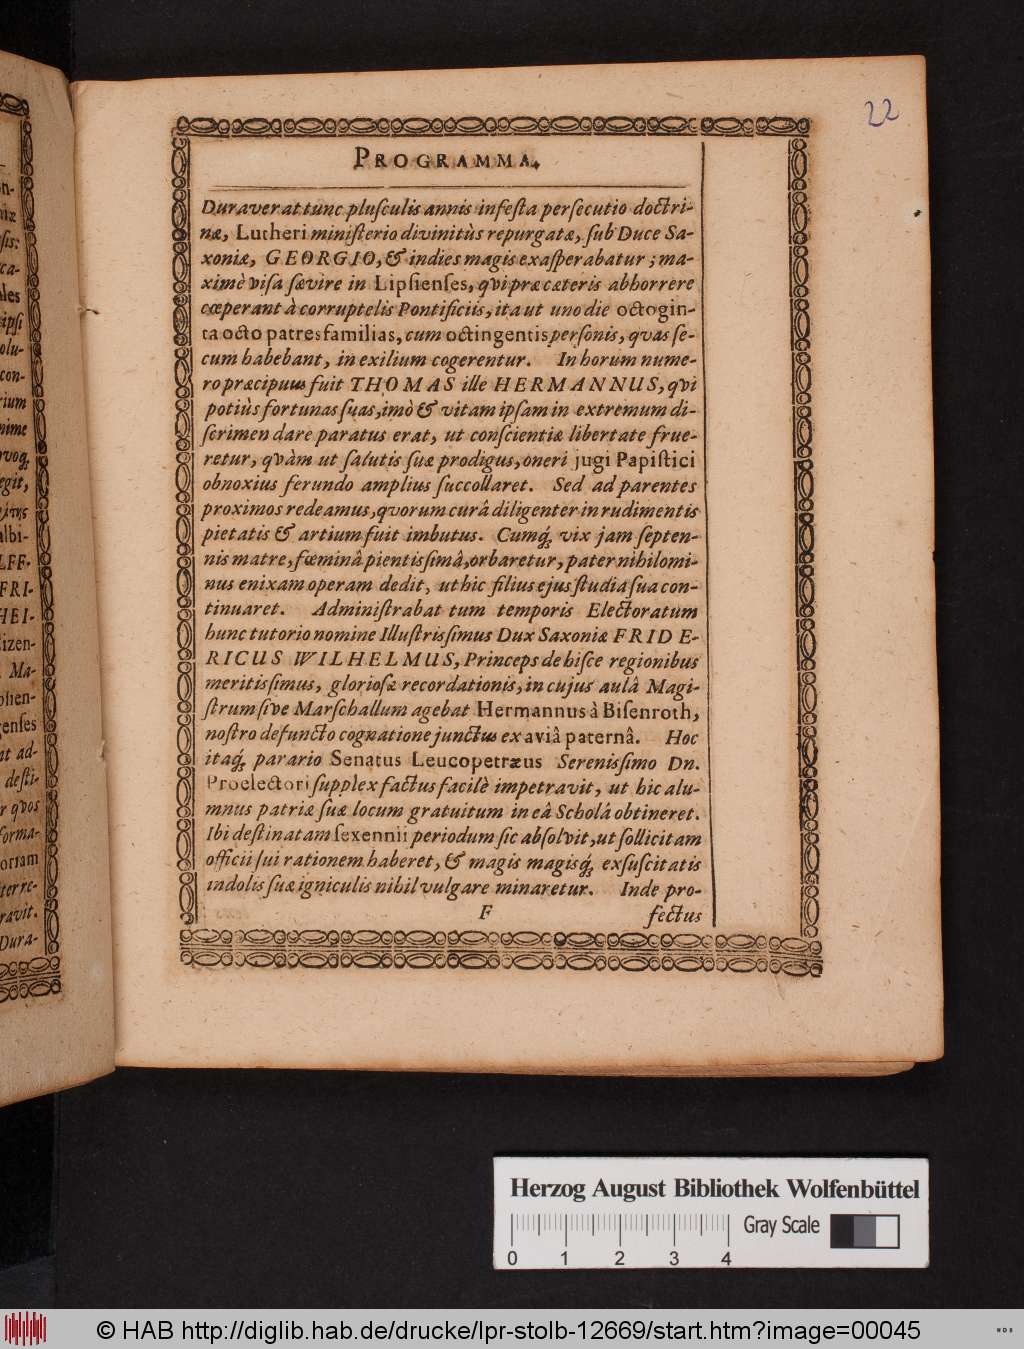 22
PROGRAMMA.
Duraverat tunc plusculis annis infesta persecutio doctri-
næ, Lutheri ministerio divinitùs repurgatæ, sub Duce Sa-
xoniæ, GEORGIO, & indies magis exasperabatur; ma-
ximè visa sævire in Lipsienses, qvi præ cæteris abhorrere
cœperant à corruptelis Pontificiis, ita ut uno die octogin-
ta octo patresfamilias, cum octingentis personis, qvas se-
cum habebant, in exilium cogerentur. In horum nume-
ro præcipuus fuit THOMAS ille HERMANNUS, qvi
potiùs fortunas suas, imò & vitam ipsam in extremum di-
scrimen dare paratus erat, ut conscientiæ libertate frue-
retur, qvàm ut salutis suæ prodigus, oneri jugi Papistici
obnoxius ferundo amplius succollaret. Sed ad parentes
proximos redeamus, qvorum curâ diligenter in rudimentis
pietatis & artium fuit imbutus. Cumq́; vix jam septen-
nis matre, fœminâ pientissimâ, orbaretur, pater nihilomi-
nus enixam operam dedit, ut hic filius ejus studia sua con-
tinuaret. Administrabat tum temporis Electoratum
hunc tutorio nomine Illustrissimus Dux Saxoniæ FRIDE-
RICUS WILHELMUS, Princeps de hisce regionibus
meritissimus, gloriosæ recordationis, in cujus aulâ Magi-
strum sive Marschallum agebat Hermannus à Bisenroth,
nostro defuncto cognatione junctus ex aviâ paternâ. Hoc
itaq́; parario Senatus Leucopetræus Serenissimo Dn.
Proelectori supplex factus facilè impetravit, ut hic alu-
mnus patriæ suæ locum gratuitum in eâ Scholâ obtineret.
Ibi destinatam sexennii periodum sic absolvit, ut sollicitam
officii sui rationem haberet, & magis magisq́; exsuscitatis
indolis suæ igniculis nihil vulgare minaretur. Inde pro-
F fectus
Herzog August Bibliothek Wolfenbüttel
Gray Scale
0 1 2 3 4
© HAB http://diglib.hab.de/drucke/lpr-stolb-12669/start.htm?image=00045